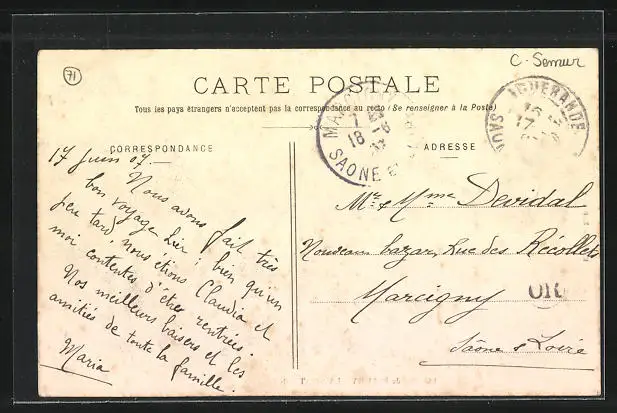 71
C. Semur
CARTE POSTALE
Tous les pays étrangers n'acceptent pas la correspondance au recto (Se renseigner à la Poste)
CORRESPONDANCE
17 Juin 07.
Nous avons fait très
bon voyage hier ; bien qu'un
peu tard nous étions Claudia et
moi contentes d'être rentrées.
Nos meilleurs baisers et les
amitiés de toute la famille.
Maria
ADRESSE
Mr. & Mme Devidal
Nouveau bazar, Rue des Récollets
Marcigny
Saône & Loire
MARCIGNY
18 -6
SAONE ET
IGUERANDE
OR